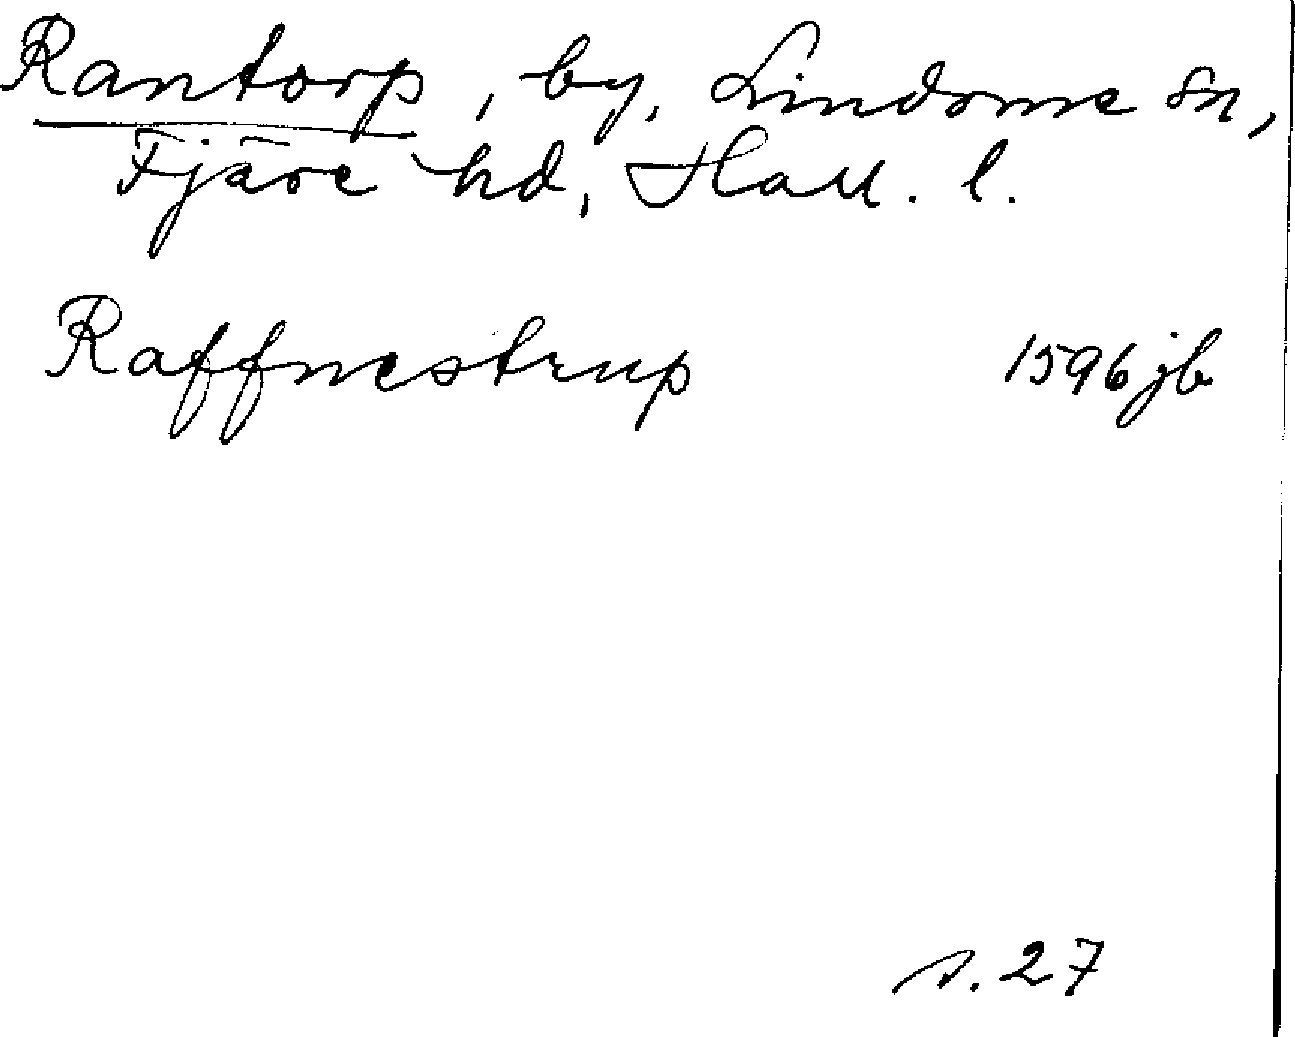 Rantorp, by, Lindome sn,
Fjäre hd, Hall. l.
Raffnestrup 1596 jb
s. 27